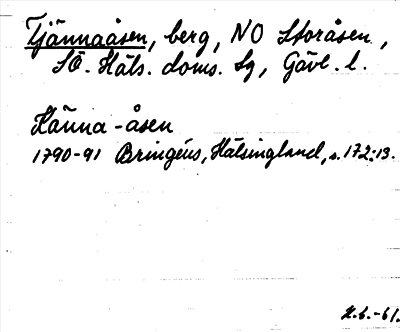 Tjännaåsen, berg, NO Storåsen,
SÖ. Häls. doms. sg, Gävl. l.
Känna-åsen
1790-91 Bringéus, Hälsingland, s. 172:13.
-61.